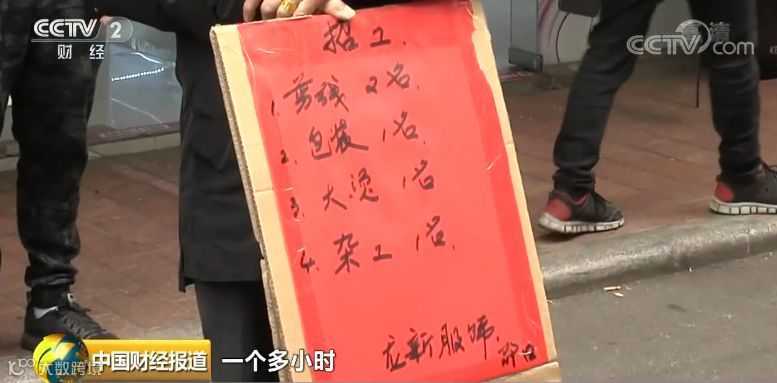 CCTV 2
财经
CCTV.com
高清
招工.
1. 剪线 2名
2. 包装 1名
3. 大烫 1名
4. 杂工 1名.
新服饰.
中国财经报道
一个多小时
大数跨境